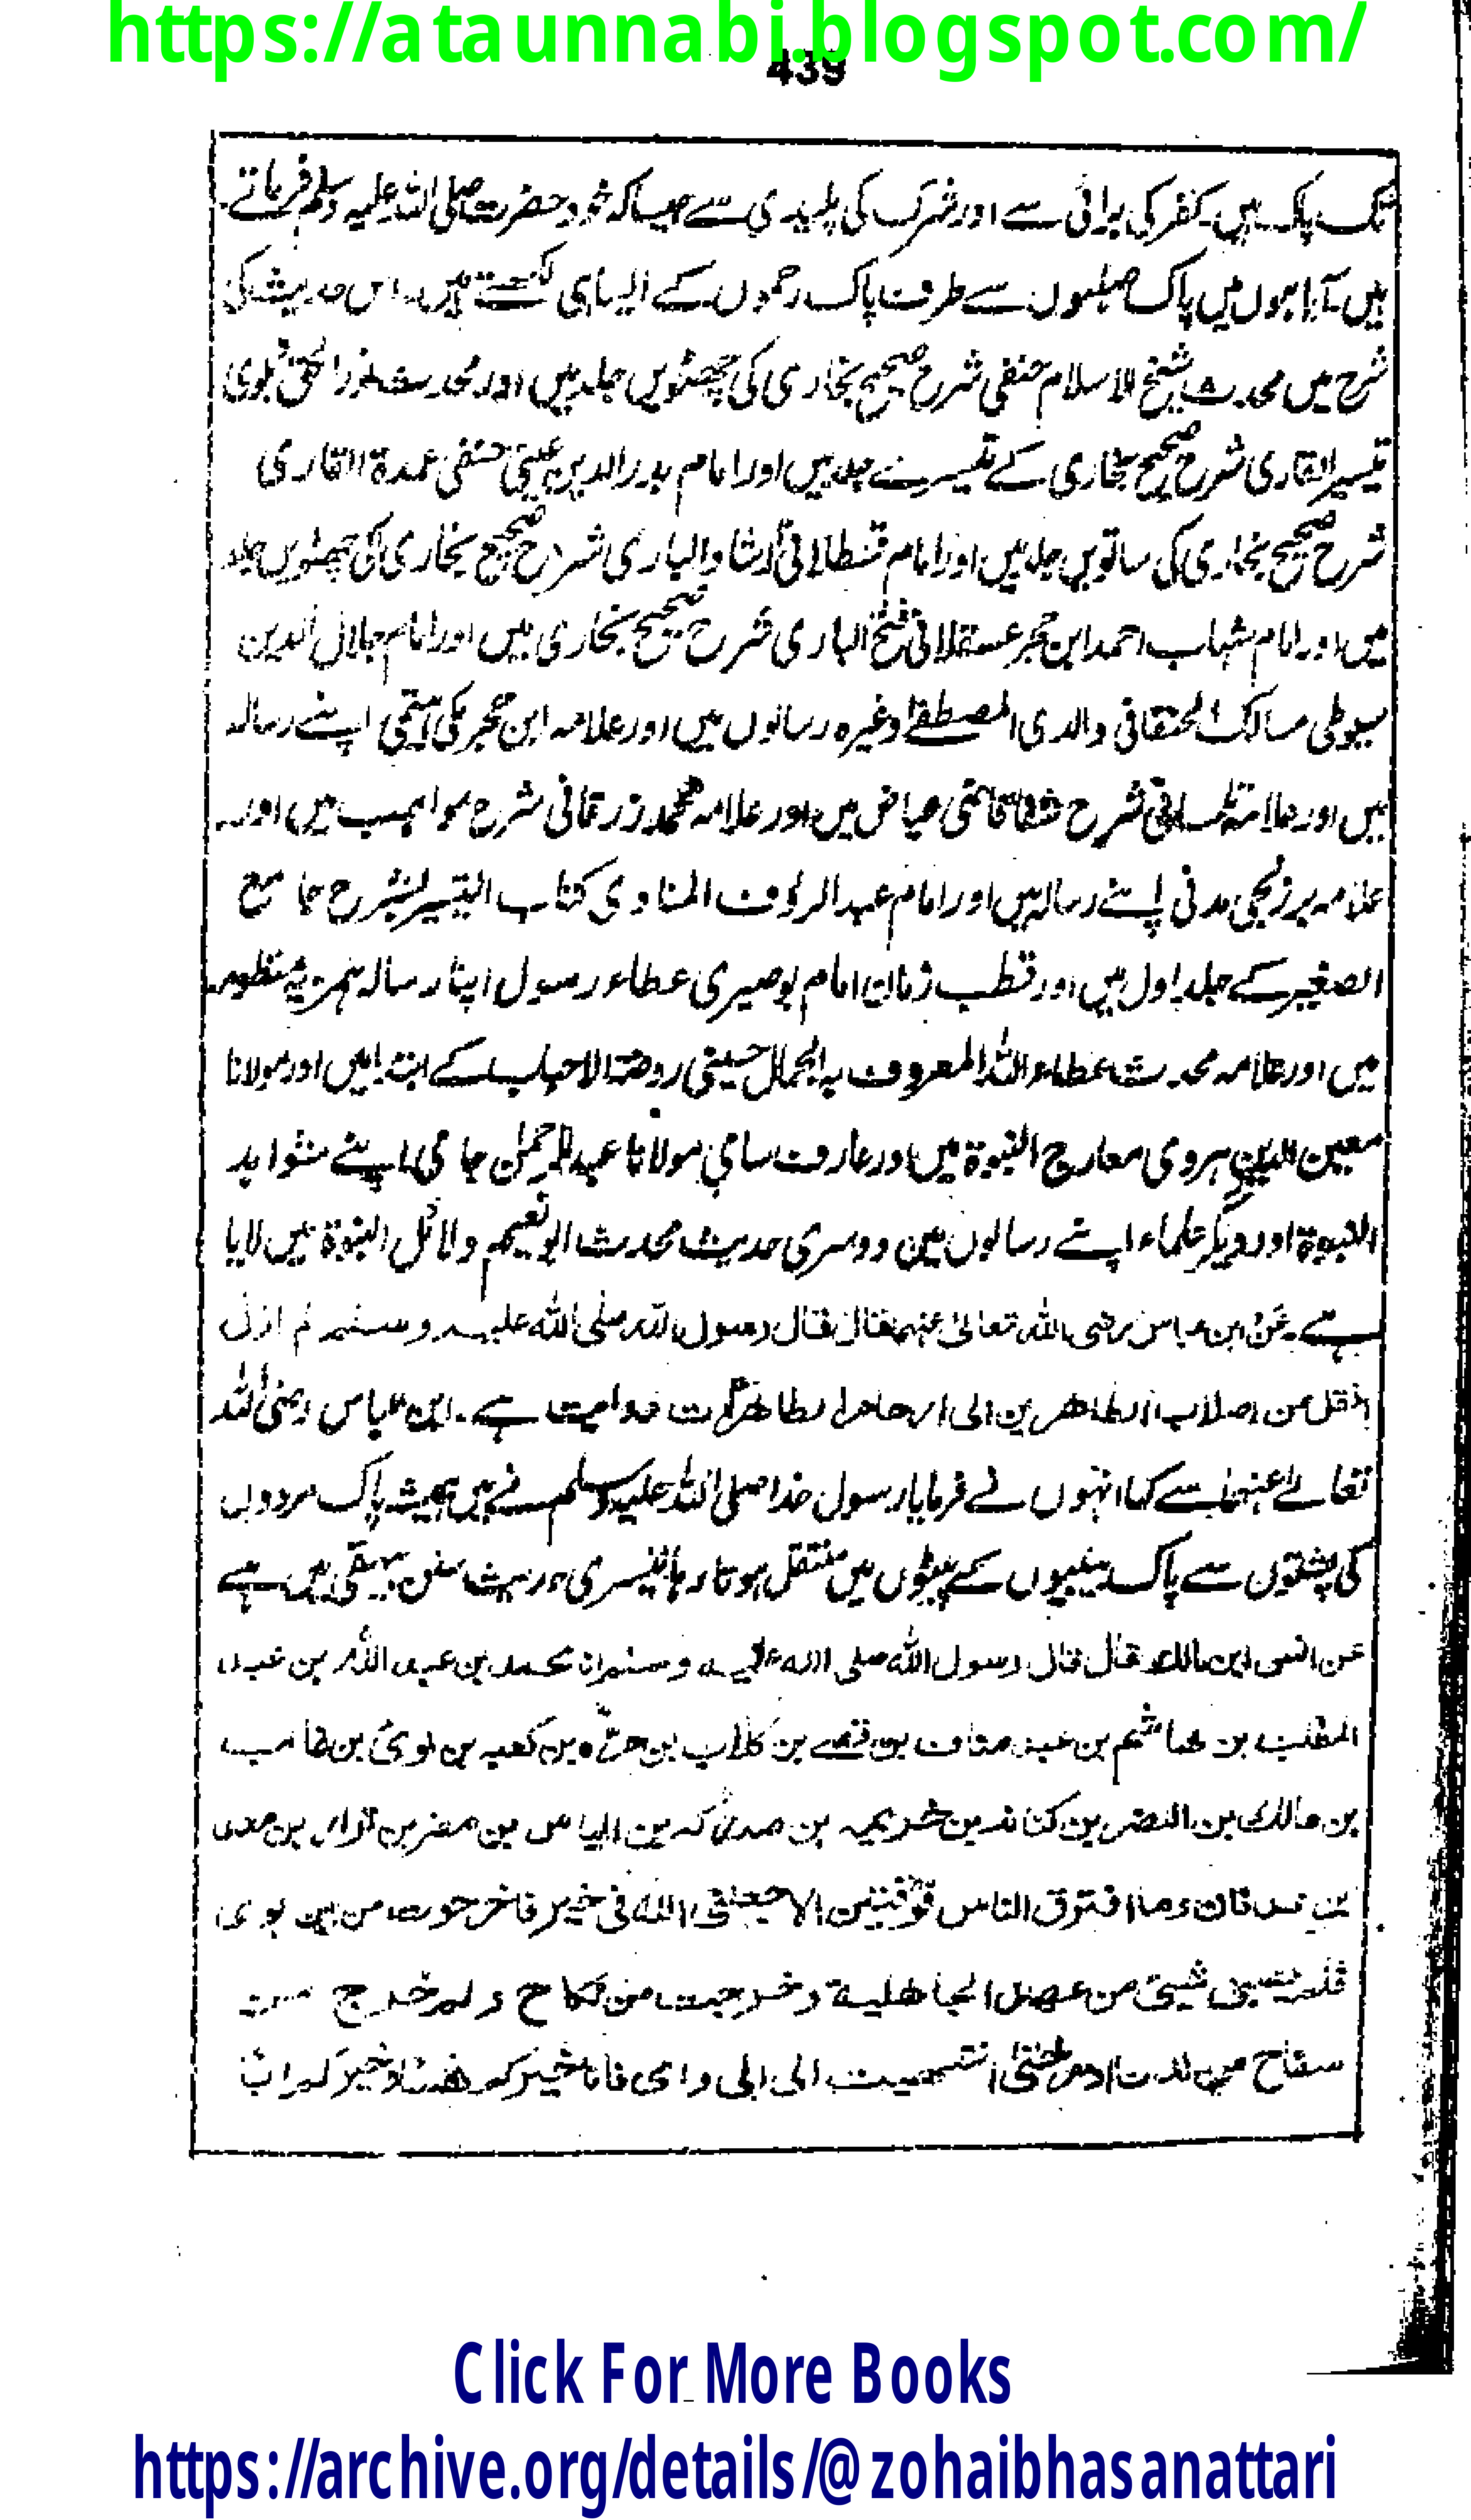 https://ataunnabi.blogspot.com/
439
تک پاک ہیں۔ کفر کی برائی سے اور شرک کی پلیدی سے جیسا کہ خود حضرت صلی اللہ علیہ وسلم فرماتے
ہیں۔ آیا ہوں میں پاک صلبوں سے طرف پاک رحموں کے ایسا ہی لکھتے ہیں۔ اس حدیث کی
شرح میں محدث شیخ الاسلام حنفی شرح صحیح بخاری کی چھٹویں جلد میں اور محدث نور الحق دہلوی
تیسیر القاری شرح صحیح بخاری کے تیسرے جلد میں اور امام بدر الدین عینی حنفی عمدة القاری
شرح صحیح بخاری کی ساتویں جلد میں اور امام قسطلانی ارشاد الباری شرح صحیح بخاری کی چھٹویں جلد
میں اور امام شہاب احمد ابن حجر عسقلانی فتح الباری شرح صحیح بخاری میں اور امام جلال الدین
سیوطی مسالک الحنفاء فی والدی المصطفے وغیرہ رسالوں میں اور علامہ ابن حجر مکی ہیتمی اپنے رسالہ
میں اور علامہ تلمسانی شرح شفا قاضی عیاض میں اور علامہ محمد زرقانی شرح مواہب میں اور
علامہ برزنجی مدنی اپنے رسالہ میں اور امام عبد الرؤف المناوی کتاب التیسیر لشرح جامع
الصغیر کے جلد اول میں اور قطب زمان امام بوصیری عطاء رسول اپنا رسالہ ہمزیہ منظومہ
میں اور علامہ محدث عطاء اللہ المعروف بہ الجمال حسینی روضۃ الاحباب کے ابتدا میں اور مولانا
معین الدین ہروی معارج النبوة میں اور عارف سامی مولانا عبد الرحمٰن جامی اپنے شواہد
النبوة اور دیگر علماء اپنے رسالوں میں دوسری حدیث محدث ابو نعیم دلائل النبوة میں لایا
ہے۔ عن ابن عباس رضی اللہ تعالیٰ عنہما قال قال رسول اللہ صلی اللہ علیہ وسلم لم ازل
انقل من اصلاب الطاهرين الى ارحام الطاهرات روایت ہے۔ ابن عباس رضی اللہ
تعالے عنہما سے کہا انہوں نے فرمایا رسول خدا صلی اللہ علیہ وسلم نے میں ہمیشہ پاک مردوں
کی پشتوں سے پاک بیبیوں کے پیٹوں میں منتقل ہوتا رہا تیسری حدیث سنن بیہقی میں ہے
عن انس ابن مالك قال قال رسول الله صلى الله عليه وسلم انا محمد بن عبد الله بن عبد
المطلب بن هاشم بن عبد مناف بن قصے بن كلاب بن مرّة بن كعب بن لوی بن غالب
بن مالك بن النضر بن كنانه بن خزيمه بن مدركه بن الياس بن مضر بن نزار بن معد
بن عدنان وما افترق الناس فرقتين الا جعلنى الله فى خير فاخرجت من بين ابوى
فلم يصبنى شيئ من عهد الجاهلية وخرجت من نكاح ولم اخرج من
سفاح من لدن ادم حتى انتهيت الى ابى وامى فانا خيركم نفسا وخيركم ابا
Click For More Books
https://archive.org/details/@zohaibhasanattari